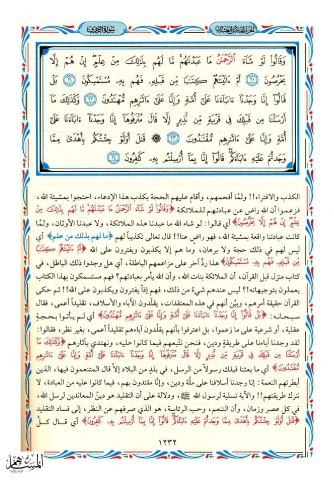 سورة الزخرف
وَقَالُوا۟ لَوْ شَآءَ ٱلرَّحْمَٰنُ مَا عَبَدْنَٰهُم مَّا لَهُم بِذَٰلِكَ مِنْ عِلْمٍ إِنْ هُمْ إِلَّا
يَخْرُصُونَ ۝٢٠ أَمْ ءَاتَيْنَٰهُمْ كِتَٰبًا مِّن قَبْلِهِۦ فَهُم بِهِۦ مُسْتَمْسِكُونَ ۝٢١ بَلْ
قَالُوٓا۟ إِنَّا وَجَدْنَآ ءَابَآءَنَا عَلَىٰٓ أُمَّةٍ وَإِنَّا عَلَىٰٓ ءَاثَٰرِهِم مُّهْتَدُونَ ۝٢٢ وَكَذَٰلِكَ مَآ
أَرْسَلْنَا مِن قَبْلِكَ فِى قَرْيَةٍ مِّن نَّذِيرٍ إِلَّا قَالَ مُتْرَفُوهَآ إِنَّا وَجَدْنَآ ءَابَآءَنَا عَلَىٰٓ
أُمَّةٍ وَإِنَّا عَلَىٰٓ ءَاثَٰرِهِم مُّقْتَدُونَ ۝٢٣ ۞ قَٰلَ أَوَلَوْ جِئْتُكُم بِأَهْدَىٰ مِمَّا
وَجَدتُّمْ عَلَيْهِ ءَابَآءَكُمْ قَالُوٓا۟ إِنَّا بِمَآ أُرْسِلْتُم بِهِۦ كَٰفِرُونَ ۝٢٤
الكذب والافتراء!! ولمّا أفحمهم، وأقام عليهم الحجة بكذب هذا الإدعاء، احتجوا بمشيئة الله،
فزعموا أن الله راض عن عبادتهم للملائكة ﴿وَقَالُوا۟ لَوْ شَآءَ ٱلرَّحْمَٰنُ مَا عَبَدْنَٰهُم مَّا لَهُم بِذَٰلِكَ مِنْ
عِلْمٍ إِنْ هُمْ إِلَّا يَخْرُصُونَ﴾ أي قالوا: لو شاء الله ما عبدنا هذه الملائكة، ولا عبدنا الأوثان، ولمّا
كانت عبادتنا واقعة بمشيئة الله، فهو راض عنا!! قال تعالى تكذيباً لهم ﴿ما لهم بذلك من علم﴾ أي
ليس لهم في ذلك حجة ولا برهان، وما هم إلا يكذبون ويفترون على الله ﴿أَمْ ءَاتَيْنَٰهُمْ كِتَٰبًا
مِّن قَبْلِهِۦ فَهُم بِهِۦ مُسْتَمْسِكُونَ﴾ هذا ردّ آخر على مزاعمهم الباطلة، أي هل وجدوا ذلك الباطل، في
كتاب منزل قبل القرآن، أن الملائكة بنات الله، وأن الله يأمر بعبادتهم؟ فهم مستمسكون بهذا الكتاب
يعملون بتوجيهاته؟! ليس عندهم شيء من ذلك، فهم إذاً يفترون ويكذبون على الله!! ثم حكى
القرآن حقيقة أمرهم، وبيّن أنهم في هذه المعتقدات، يقلّدون الآباء والأسلاف، تقليداً أعمى، فقال
سبحانه: ﴿بَلْ قَالُوٓا۟ إِنَّا وَجَدْنَآ ءَابَآءَنَا عَلَىٰٓ أُمَّةٍ وَإِنَّا عَلَىٰٓ ءَاثَٰرِهِم مُّهْتَدُونَ﴾ أي لم يأتوا بحجة
عقلية، أو شرعية على ما زعموا، بل اعترفوا بأنهم يقلّدون آباءهم تقليداً أعمى، بغير نظر، فقالوا:
لقد وجدنا آباءنا على طريقةٍ ودين، فنحن نتّبعهم فيما كانوا عليه، ونهتدي بآثارهم ﴿وَكَذَٰلِكَ مَآ
أَرْسَلْنَا مِن قَبْلِكَ فِى قَرْيَةٍ مِّن نَّذِيرٍ إِلَّا قَالَ مُتْرَفُوهَآ إِنَّا وَجَدْنَآ ءَابَآءَنَا عَلَىٰٓ أُمَّةٍ وَإِنَّا عَلَىٰٓ ءَاثَٰرِهِم
مُّقْتَدُونَ﴾ أي ما بعثنا قبلك رسولاً من الرسل، في بلدٍ من البلاد إلاّ قال المتنعمون فيها، الذين
أبطرتهم النعمة: إنا وجدنا أسلافنا على ملّة ودين، وإنّا مقتدون بهم، فيما كانوا عليه من العبادة، لا
نترك طريقتهم!! والآية تسلية لرسول الله ﷺ، ودلالة على أن التقليد هو دينُ المعاندين لرسل الله،
في كل عصر وزمان، وأن التنعم، وحب الرئاسة، هو الذي صرفهم عن النظر، إلى فساد التقليد
﴿قَٰلَ أَوَلَوْ جِئْتُكُم بِأَهْدَىٰ مِمَّا وَجَدتُّمْ عَلَيْهِ ءَابَآءَكُمْ قَالُوٓا۟ إِنَّا بِمَآ أُرْسِلْتُم بِهِۦ كَٰفِرُونَ﴾ أي قال كلّ
١٢٣٢